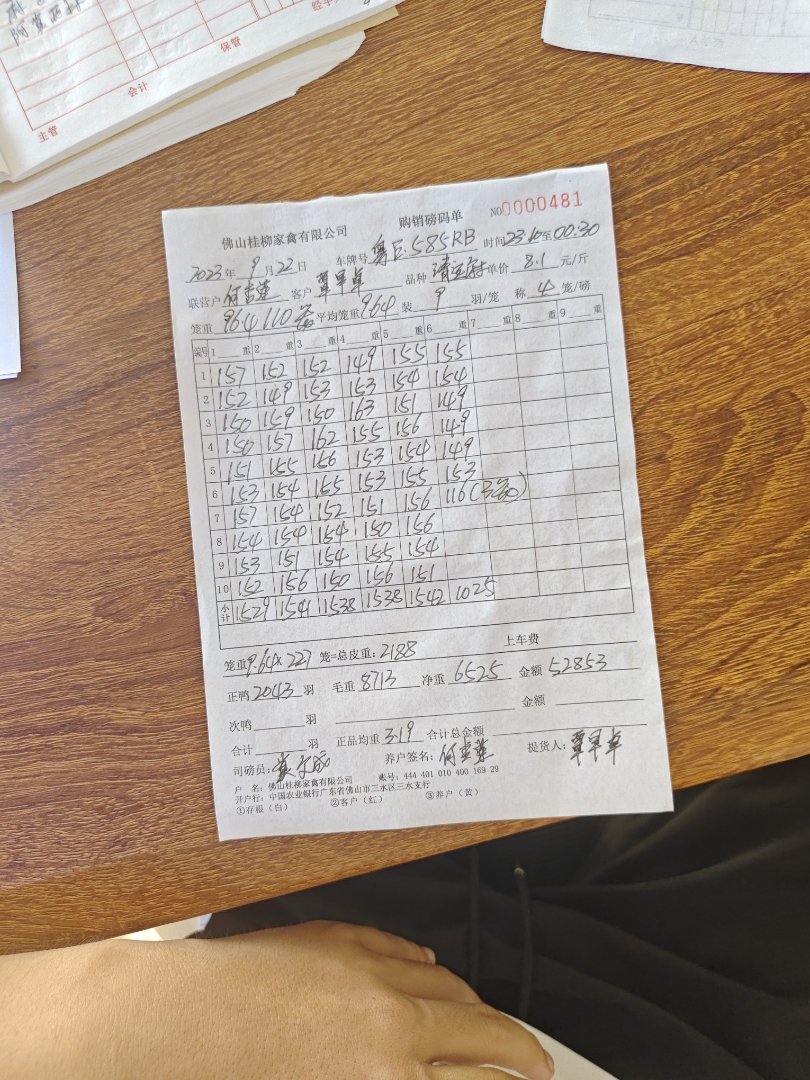 主管
会计
保管
佛山桂柳家禽有限公司 购销磅码单 NO0000481
2023年9月22日 车牌号 粤E·585RB 时间23:10至00:30
联营户 客户 覃早卓 品种 单价 8.1 元/斤
笼重 964 110条 平均笼重 9.64 装 9 羽/笼 称 4 笼/磅
编号 1 重 2 重 3 重 4 重 5 重 6 重 7 重 8 重 9 重
1 157 152 152 149 155 155
2 152 149 153 153 154 154
3 150 159 150 163 151 149
4 150 157 162 155 156 149
5 151 155 156 153 154 149
6 153 154 155 153 155 153
7 157 154 152 151 156 116(3笼)
8 154 154 154 150 156
9 153 151 154 155 154
10 152 156 150 156 151
小计 1529 1541 1538 1538 1542 1025
笼重9.64×227 笼=总皮重:2188 上车费
正鸭 2043 羽 毛重 8713 净重 6525 金额 52853
次鸭 羽 金额
合计 羽 正品均重 3.19 合计总金额
司磅员: 养户签名: 提货人: 覃早卓
户 名: 佛山桂柳家禽有限公司 账号: 444 401 010 400 169 29
开户行: 中国农业银行广东省佛山市三水区三水支行
①存根(白) ②客户(红) ③养户(黄)